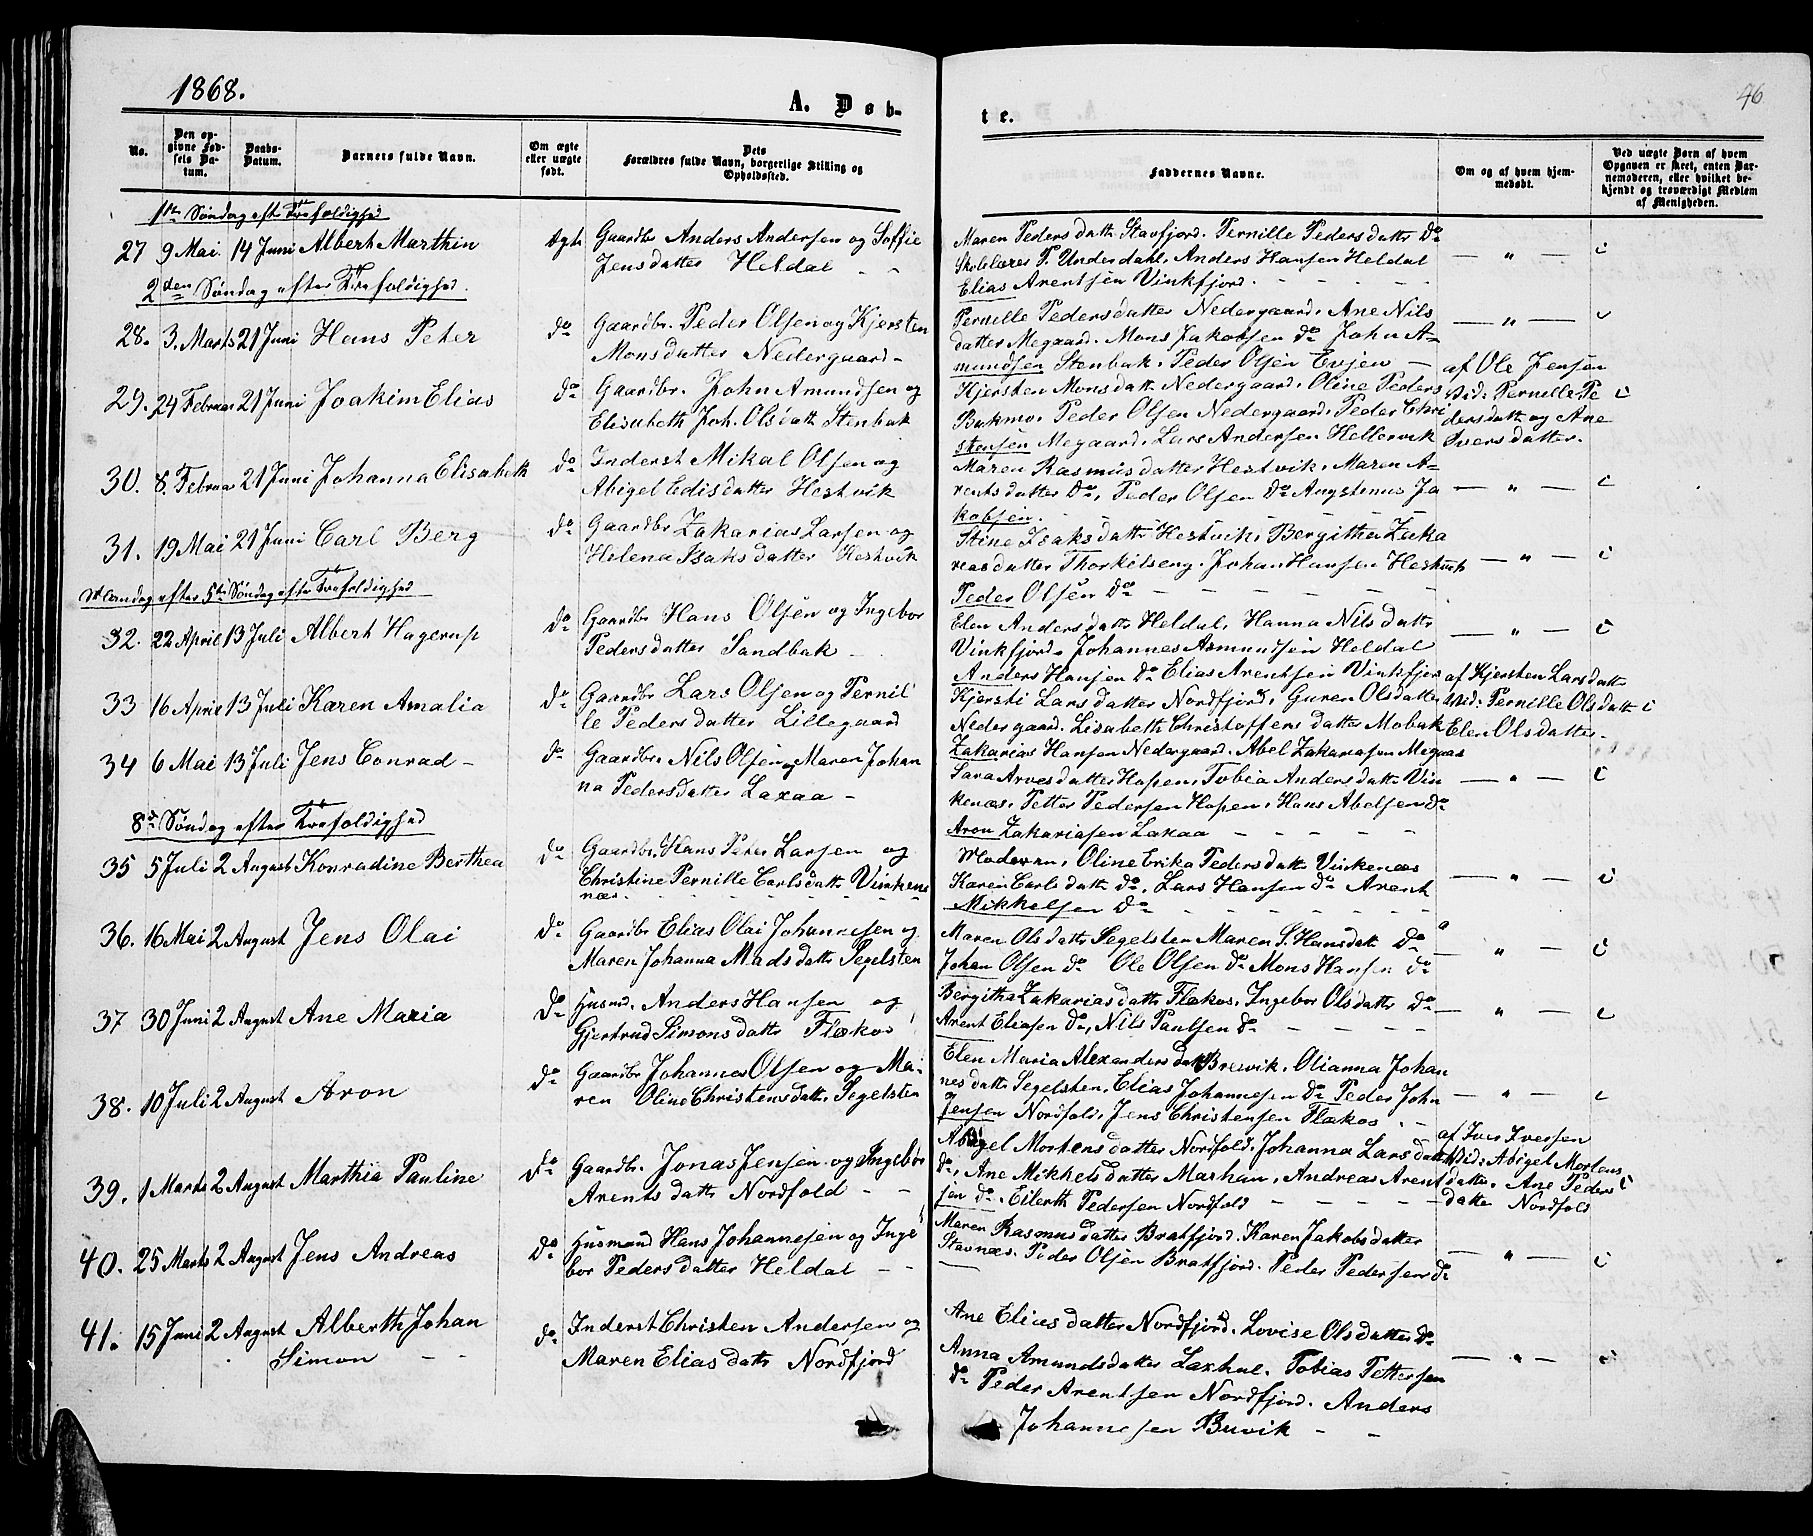 1868.
A. Døb-
te.
46
No.
Den op-
givne Fød-
sels Da-
tum.
Daabs-
Datum.
Barnets fulde Navn.
Om ægte
eller uægte
født.
Dets
Forældres fulde Navn, borgerlige Stilling og
Opholdssted.
Faddernes Navne.
Om og af hvem hjem-
medøbt.
Ved uægte Børn af hvem
Opgaven er skeet, enten Bar-
nemoderen, eller hvilket be-
kjendt og troværdigt Medlem
af Menigheden.
1ste Søndag eft Trefoldighed
27 9 Mai. 14 Juni Albert Marthin Ægte Gaardbr Anders Andersen og Soffie
Jensdatter Heldal - -
Maren Pedersdattr Stavfjord. Pernille Pedersdattr Do
Skolelærer P. Underdahl, Anders Hansen Heldal
Elias Arentsen Vinkfjord.
— " —
2den Søndag efter Trefoldighed.
28. 3. Marts 21 Juni Hans Peter do Gaardbr. Peder Olsen og Kjersten
Monsdatter Nedergaard-
Pernille Pedersdatter Nedergaard, Ane Nils
datter Megaard. Mons Jakobsen do John A-
mundsen Stenbak. Peder Olsen Evjen —
— " —
29. 24 Februar 21 Juni Joakim Elias do Gaardbr. John Amundsen og
Elisabeth Joh. Olsdattr Stenbak
Kjersten Monsdattr Nedergaard, Oline Peders
Bakmo, Peder Olsen Nedergaard, Peder Chri
stensen Megaard, Lars Andersen Hellervik
af Ole Jensen
Vid: Pernille Pe
dersdattr og Ane
Iversdatter.
30. 8. Februar 21 Juni Johanna Elisabeth do Inderst Mikal Olsen og
Abigel Edisdatter Hestvik
Maren Rasmusdatter Hestvik, Maren A-
rentsdatter Do, Peder Olsen Do Augstinus Ja
kobsen.
— " —
31. 19 Mai 21 Juni Carl Berg do Gaardbr Zakarias Larsen og
Helena Isaksdatter Hestvik
Stine Isaksdattr Hestvik, Bergitha Zaka
reasdatter Thorkelseng. Johan Hansen Hestvik
Peder Olsen do
— " —
Mandag efter 5te Søndag efter Trefoldighed
32. 22 April 13 Juli Albert Hagerup do Gaardbr Hans Olsen og Ingebor
Pedersdatter Sandbak —
Elen Andersdattr Heldal, Hanna Nilsdattr
Vinkfjord, Johannes Asmundsen Heldal
Anders Hansen do Elias Arentsen Vinkfjor
— " —
33 16 April 13 Juli Karen Amalia do Gaardbr Lars Olsen og Pernil
le Pedersdatter Lillegaard
Kjersti Larsdatter Nordfjord, Guren Olsdatter
Nedergaard. Lisabeth Christoffersdatter Mobak
Zakarias Hansen Nedergaard. Abel Zakariasen Megaar
af Kjersten Larsdattr
Vid: Pernille Olsdattr
Elen Olsdatter.
34 6 Mai 13 Juli Jens Conrad - do Gaardbr. Nils Olsen og Maren Johan
na Pedersdatter Laxaa -
Sara Arnesdatter Hopen, Tobia Andersdattr Vin
kenæs. Petter Pedersen Hopen, Hans Abelsen do
Aron Zakariasen Laxaa
— " —
8de Søndag efter Trefoldighed
35 5 Juli 2 August Konradine Berthea do Gaardbr. Hans Peter Larsen og
Christine Pernille Carlsdattr Vinkens
næs.
Moderen, Oline Erika Pedersdattr Vinkenæs
Karen Carlsdattr do. Lars Hansen do Arent
Mikkelsen do
— " —
36. 16 Mai 2 August Jens Olai do Gaardbr Elias Olai Johannesen og
Maren Johanna Madsdattr Segelsten
Maren Olsdattr Segelsten Maren S. Hansdattr Do
Johan Olsen do Ole Olsen do Mons Hansen do
— " —
37 30 Juni 2 August Ane Maria do Husmd. Anders Hansen og
Gjertrud Simonsdattr Flækos
Bergitha Zakariasdattr Flækos, Ingebor Olsdattr Do
Arent Eliasen do, Nils Paulsen do
— " —
38. 10 Juli 2 August Aron do Gaardbr Johannes Olsen og Ma-
ren Oline Christensdattr Segelsten
Elen Maria Alexandersdattr Brevik, Olianna Johan
nesdattr Segelsten. Elias Johannesen do Peder John
Jensen Nordfold, Jens Christensen Flækos
— " —
39. 1 Marts 2 August Marthia Pauline do Gaardbr. Jonas Jensen og Ingebor
Arentsdattr Nordfold - -
Abigel Mortensdatter Nordfold. Johanna Larsdattr
do, Ane Mikkelsdatter Marhau, Andreas Arent
sen do. Eilerth Pedersen Nordfold
af Iver Iversen
Vid: Abigel Mortens
datter. Ane Peders
datter Nordfold
40. 25 Marts 2 August Jens Andreas do Husmand Hans Johannesen og Inge
bor Pedersdatter Heldal - -
Maren Rasmusdatter Bratfjord. Karen Jakobsdatter
Stavnæs. Peder Olsen Bratfjord. Peder Pedersen do
— " —
41. 15 Juni 2 August Alberth Johan
Simon - -
do Inderst Christen Andersen og
Maren Eliasdattr Nordfjord
Ane Eliasdatter Nordfjord. Lovise Olsdatter Do
Anna Amundsdatter Laxhul. Tobias Pettersen
do Peder Arentsen Nordfjord. Anders
Johannesen Buvik - -
— " —